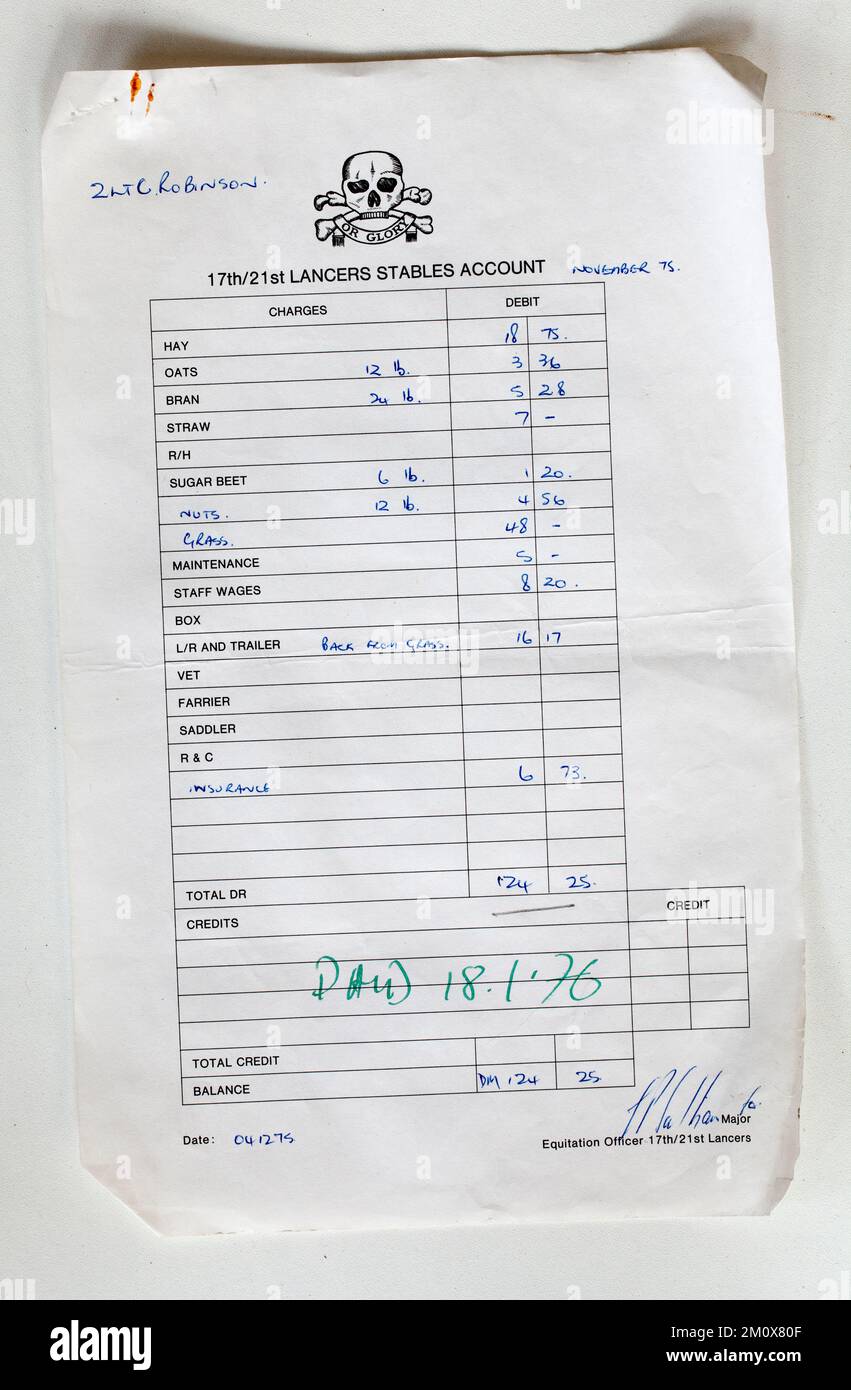 2LT C. ROBINSON.
OR GLORY
17th/21st LANCERS STABLES ACCOUNT NOVEMBER 75.
CHARGES DEBIT
HAY 18 75.
OATS 12 lb. 3 36
BRAN 24 lb. 5 28
STRAW 7 -
R/H
SUGAR BEET 6 lb. 1 20.
NUTS. 12 lb. 4 56
GRASS. 48 -
MAINTENANCE 5 -
STAFF WAGES 8 20.
BOX
L/R AND TRAILER BACK FROM GRASS. 16 17
VET
FARRIER
SADDLER
R & C
INSURANCE 6 73.
TOTAL DR 124 25.
CREDITS CREDIT
PAID 18.1.76
TOTAL CREDIT
BALANCE DM 124 25
Major
Date: 041275
Equitation Officer 17th/21st Lancers
alamy
Image ID: 2M0X80F
www.alamy.com